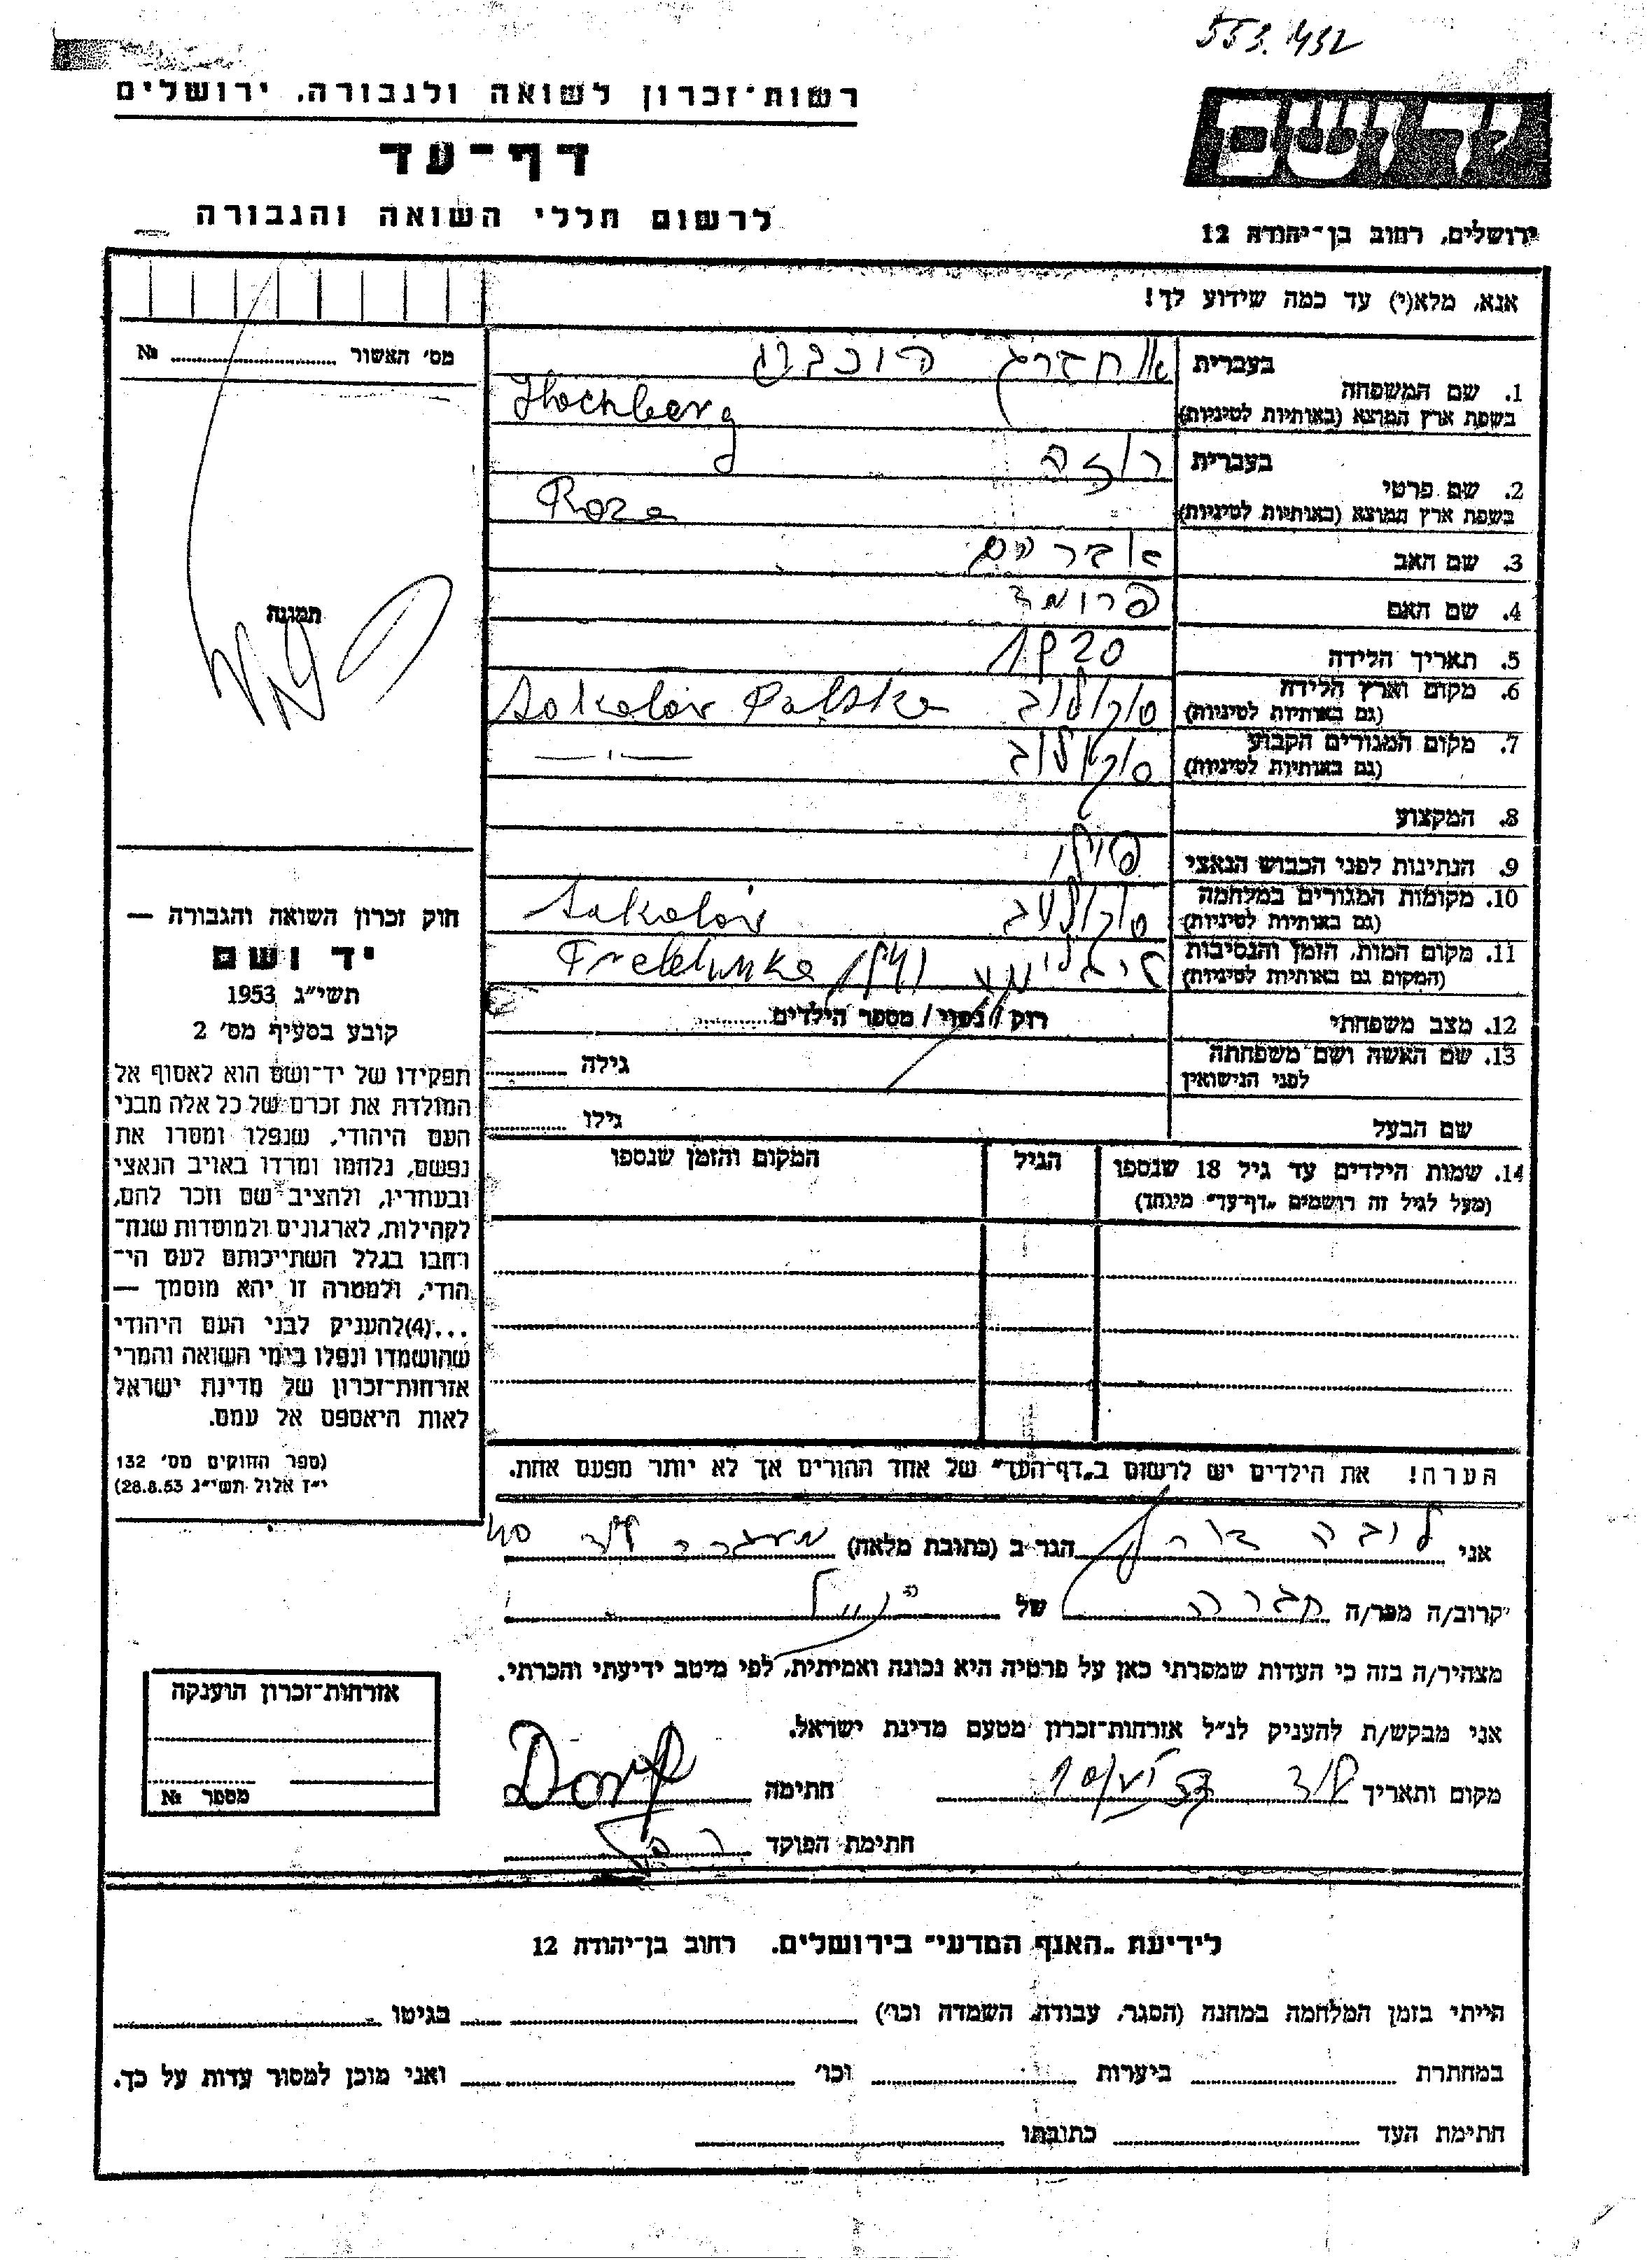 553.1432
רשות־זכרון לשואה ולגבורה, ירושלים
דף־עד
לרשום חללי השואה והגבורה
יד ושם
ירושלים, רחוב בן־יהודה 12
אנא, מלא(י) עד כמה שידוע לך!
מס׳ האשור № 
תמונה
חוק זכרון השואה והגבורה —
יד ושם
תשי״ג 1953
קובע בסעיף מס׳ 2
תפקידו של יד־ושם הוא לאסוף אל
המולדת את זכרם של כל אלה מבני
העם היהודי, שנפלו ומסרו את
נפשם, נלחמו ומרדו באויב הנאצי
ובעוזריו, ולהציב שם וזכר להם,
לקהילות, לארגונים ולמוסדות שנח־
רבו בגלל השתייכותם לעם הי־
הודי, ולמטרה זו יהא מוסמך —
...(4)להעניק לבני העם היהודי
שהושמדו ונפלו בימי השואה והמרי
אזרחות־זכרון של מדינת ישראל
לאות היאספם אל עמם.
(ספר החוקים מס׳ 132
י״ז אלול תשי״ג 28.8.53)
1. שם המשפחה
בעברית הוכברג
בשפת ארץ המוצא (באותיות לטיניות) Hochberg
2. שם פרטי
בעברית רוזה
בשפת ארץ המוצא (באותיות לטיניות) Roza
3. שם האב אברהם
4. שם האם פרומה
5. תאריך הלידה 1920
6. מקום וארץ הלידה סוקולוב Sokolów Polska
(גם באותיות לטיניות)
7. מקום המגורים הקבוע סוקולוב —"—
(גם באותיות לטיניות)
8. המקצוע
9. הנתינות לפני הכבוש הנאצי פולני
10. מקומות המגורים במלחמה סוקולוב Sokolów
(גם באותיות לטיניות)
11. מקום המות, הזמן והנסיבות 1941
(המקום גם באותיות לטיניות)
12. מצב משפחתי רוק / נשוי / מספר הילדים
13. שם האשה ושם משפחתה גילה
לפני הנישואין
שם הבעל גילו
14. שמות הילדים עד גיל 18 שנספו הגיל המקום והזמן שנספו
(מעל לגיל זה רושמים „דף־עד״ מיוחד)
הערה! את הילדים יש לרשום ב„דף־העד״ של אחד ההורים אך לא יותר מפעם אחת.
אני לובה דורף הגר ב (כתובת מלאה) מעברה לוד
קרוב/ה מכר/ה חברה של הנ״ל
מצהיר/ה בזה כי העדות שמסרתי כאן על פרטיה היא נכונה ואמיתית, לפי מיטב ידיעתי והכרתי.
אני מבקש/ת להעניק לנ״ל אזרחות־זכרון מטעם מדינת ישראל.
מקום ותאריך לוד חתימה Dorf
חתימת הפוקד
אזרחות־זכרון הוענקה
מספר №
לידיעת „האגף המדעי״ בירושלים, רחוב בן־יהודה 12
הייתי בזמן המלחמה במחנה (הסגר, עבודה, השמדה וכו׳) בגיטו
במחתרת ביערות וכו׳ ואני מוכן למסור עדות על כך.
חתימת העד כתובתו